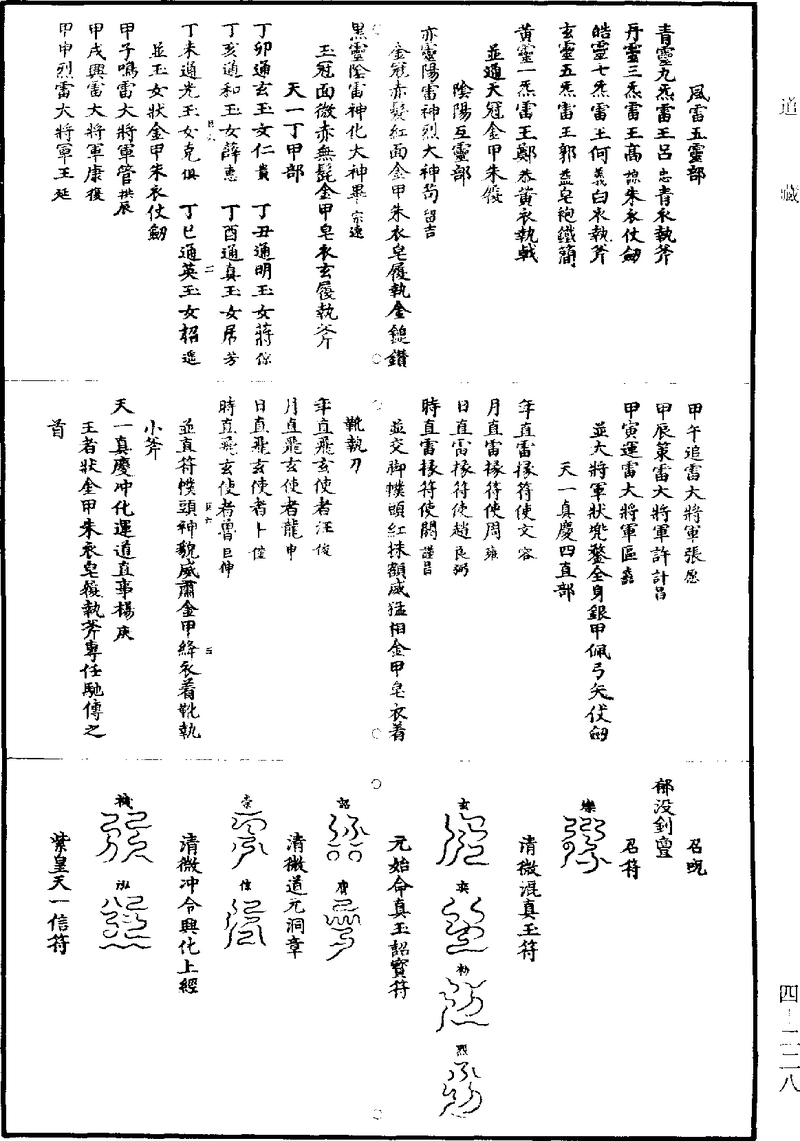 道藏
風雷五靈部
青靈九炁雷王呂忠青衣執斧
丹靈三炁雷王高諒朱衣仗劒
皓靈七炁雷王何義白衣執斧
玄靈五炁雷王郭益皂袍鐵簡
黃靈一炁雷王鄭恭黃衣執戟
並通天冠金甲朱履
陰陽互靈部
赤靈陽雷神烈大神苟留吉
金冠赤髮紅面金甲朱衣皂履執金鎚鑽
黑靈陰雷神化大神畢宗遠
玉冠面微赤無髭金甲皂衣玄履執斧
天一丁甲部
丁卯通玄玉女仁貴 丁丑通明玉女蔣倧
丁亥通和玉女薛惠 丁酉通真玉女席芳
丁未通光玉女克俱 丁巳通英玉女招遥
並玉女狀金甲朱衣仗劒
甲子鳴雷大將軍管拱辰
甲戌興雷大將軍康獲
甲申烈雷大將軍王延
甲午追雷大將軍張愿
甲辰策雷大將軍許計昌
甲寅運雷大將軍區
並大將軍狀兜鍪全身銀甲佩弓矢仗劒
天一真慶四直部
年直雷掾符使文容
月直雷掾符使周雍
日直雷掾符使趙良弼
時直雷掾符使關謹昌
並交脚幞頭紅抹額威猛相金甲皂衣着
靴執刀
年直飛玄使者汪俊
月直飛玄使者龍申
日直飛玄使者卜僮
時直飛玄使者曹巨伸
並直符幞頭神貌威肅金甲絳衣着靴執
小斧
天一真慶冲化運道直事楊庚
王者狀金甲朱衣皂履執斧專任馳傳之
首
召呪
郁没剣
召符
樂
清微混真玉符
玄 奕 初 烈
元始命真玉詔寶符
詔 膺
清微道元洞章
崇 信
清微冲令興化上經
機 泓
紫皇天一信符
四—二二八